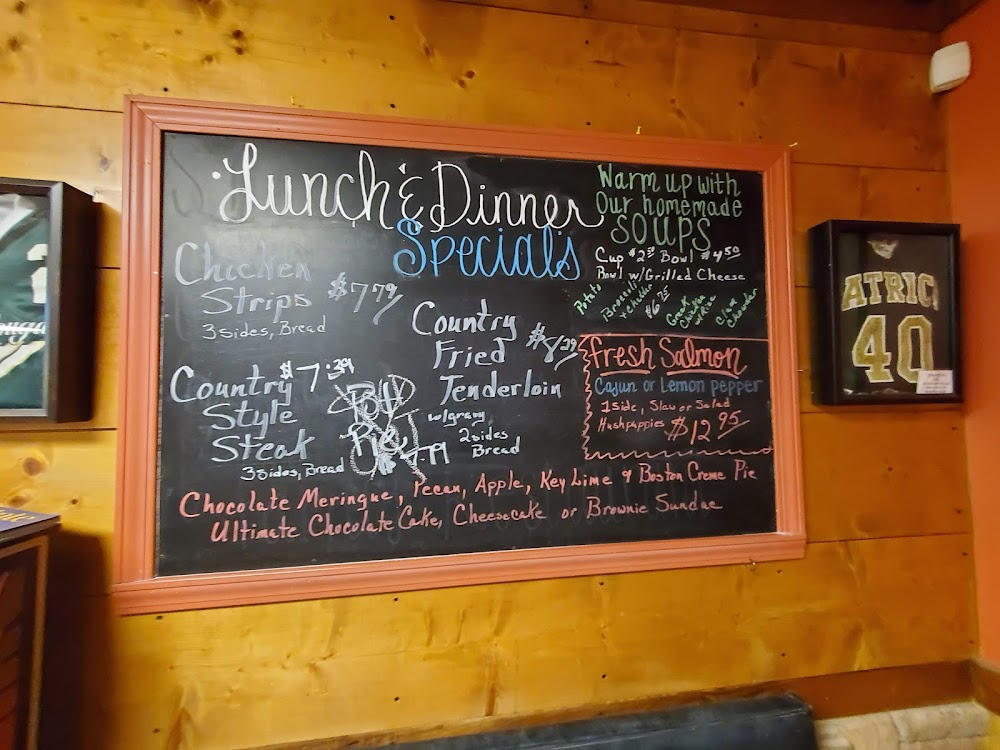 Lunch & Dinner
Specials
Chicken
Strips $7.79
3 sides, Bread
Country $7.39
Style
Steak
3 sides, Bread
Pot
Pie
Country
Fried $8.29
Tenderloin
w/gravy
2 sides
Bread
Warm up with
Our homemade
SOUPS
Cup $2.50 Bowl $4.50
Bowl w/Grilled Cheese
$6.75
Potato
Broccoli
& Cheddar
Greek
Chicken
w/Rice
Clam
Chowder
Fresh Salmon
Cajun or Lemon pepper
1 side, Slaw or Salad
Hushpuppies $12.95
Chocolate Meringue, Pecan, Apple, Key Lime & Boston Creme Pie
Ultimate Chocolate Cake, Cheesecake or Brownie Sundae
ATRIC
40